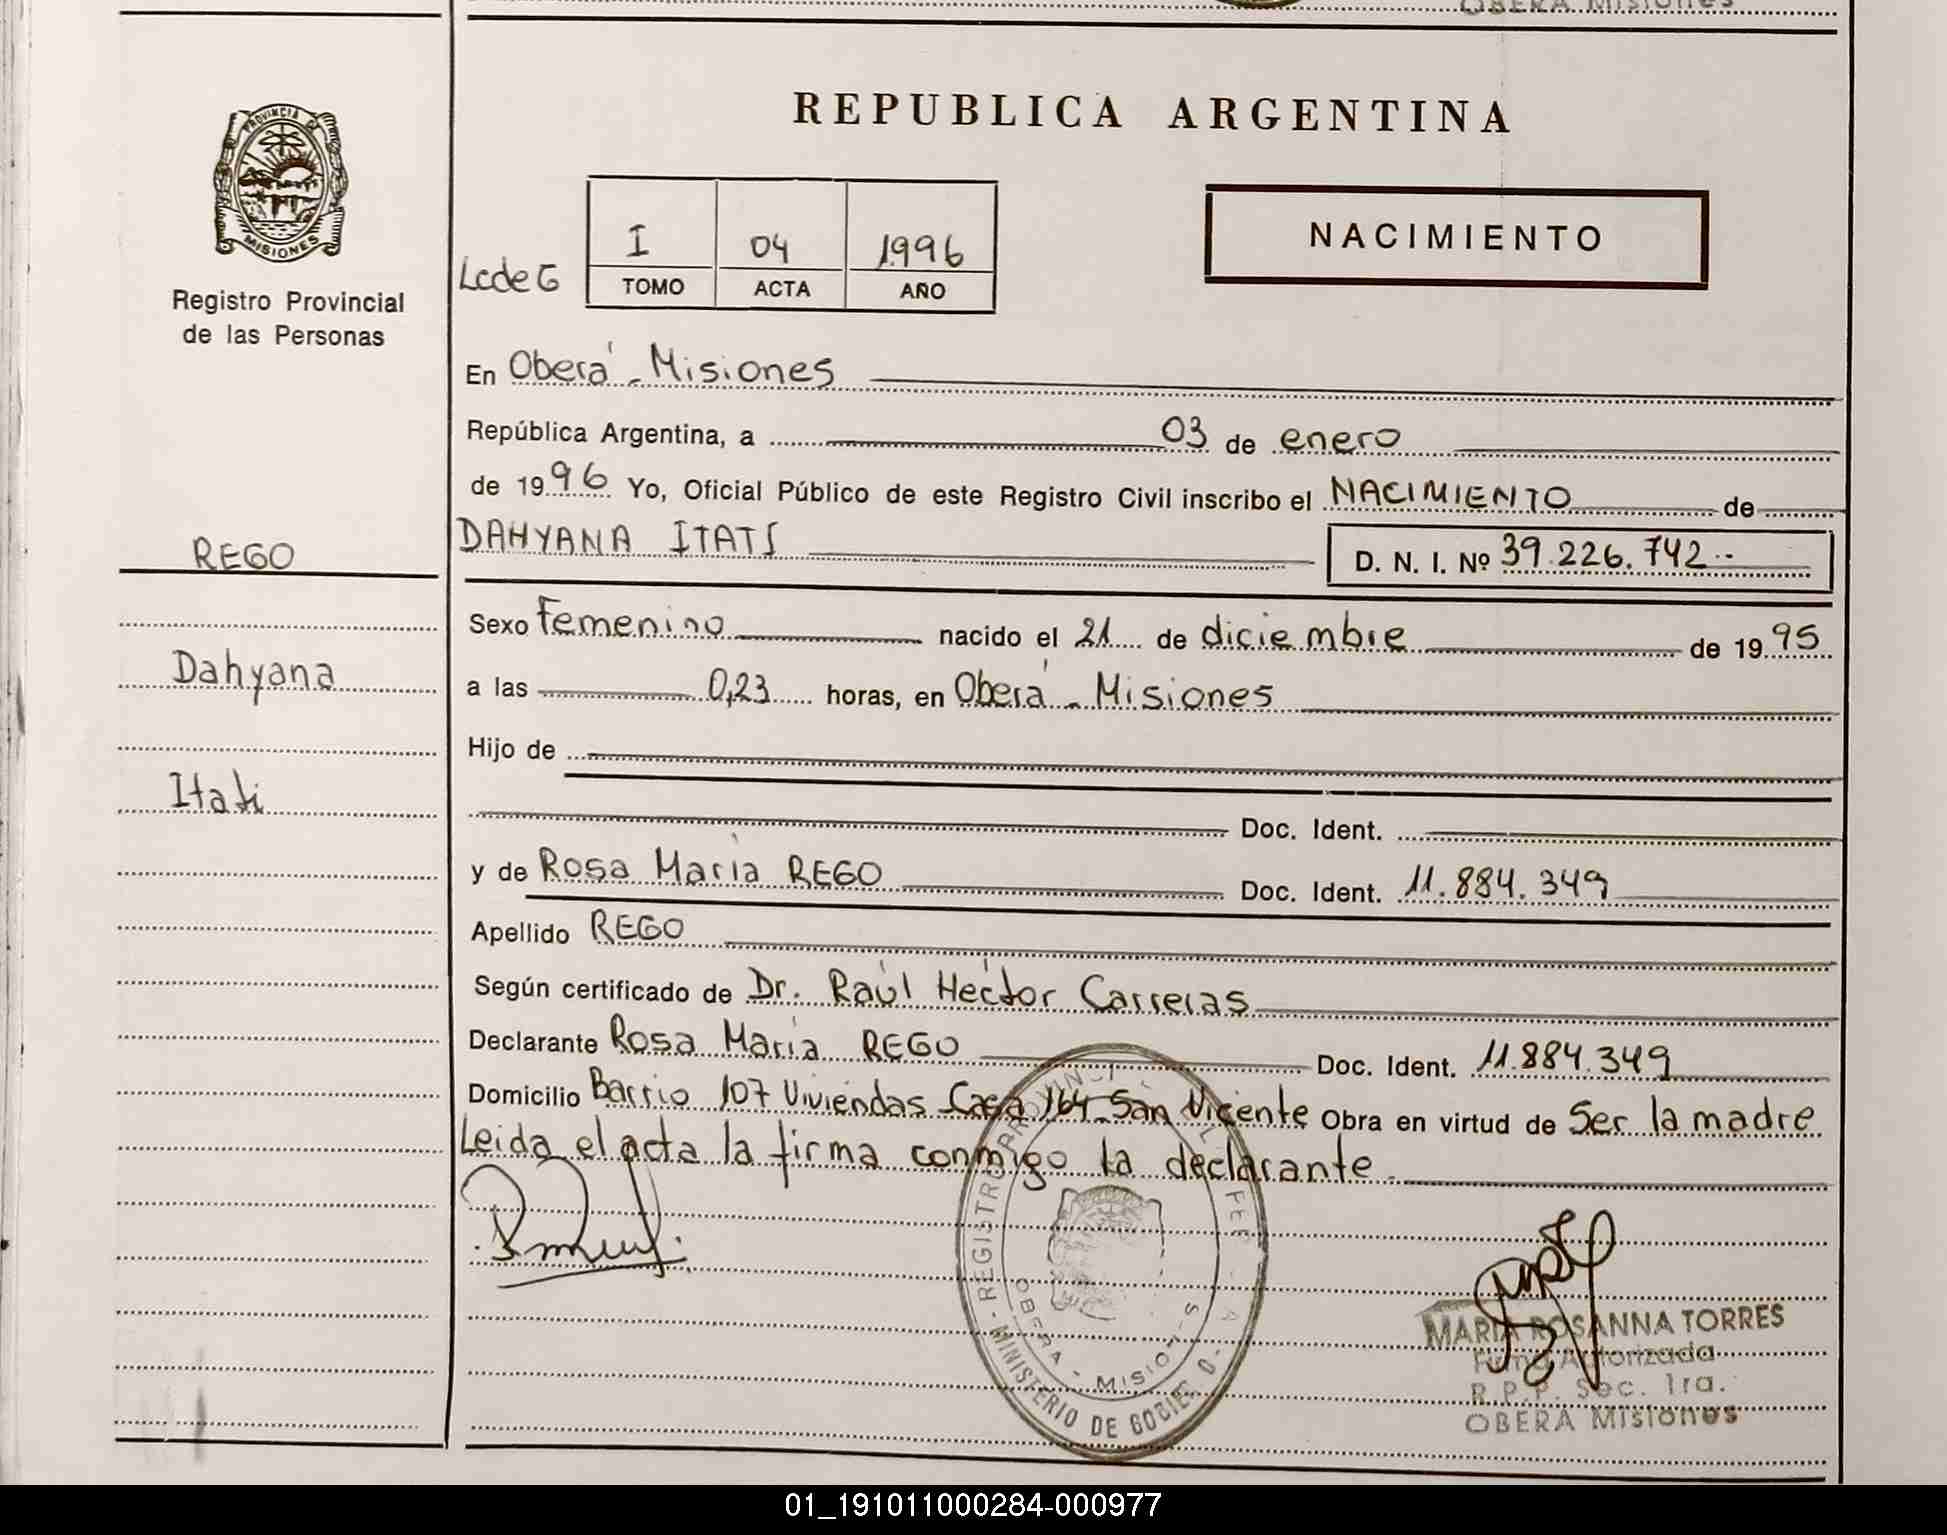 OBERA Misiones
PROVINCIA DE
MISIONES
Registro Provincial
de las Personas
REGO
Dahyana
Itati
REPUBLICA ARGENTINA
NACIMIENTO
Lcde G
I 04 1996
TOMO ACTA AÑO
En Oberá - Misiones
República Argentina, a 03 de enero
de 1996 Yo, Oficial Público de este Registro Civil inscribo el NACIMIENTO de
DAHYANA ITATI
D. N. I. Nº 39.226.742
Sexo Femenino nacido el 21 de diciembre de 1995
a las 0,23 horas, en Oberá - Misiones
Hijo de
Doc. Ident.
y de Rosa María REGO Doc. Ident. 11.884.349
Apellido REGO
Según certificado de Dr. Raúl Héctor Carreras
Declarante Rosa María REGO Doc. Ident. 11.884.349
Domicilio Barrio 107 Viviendas Casa 164 San Vicente Obra en virtud de Ser la madre
Leida el acta la firma conmigo la declarante.
REGISTRO
MINISTERIO DE
OBERA
MARIA ROSANNA TORRES
Firma Autorizada
R.P.P. Sec. 1ra.
OBERA Misiones
01_191011000284-000977